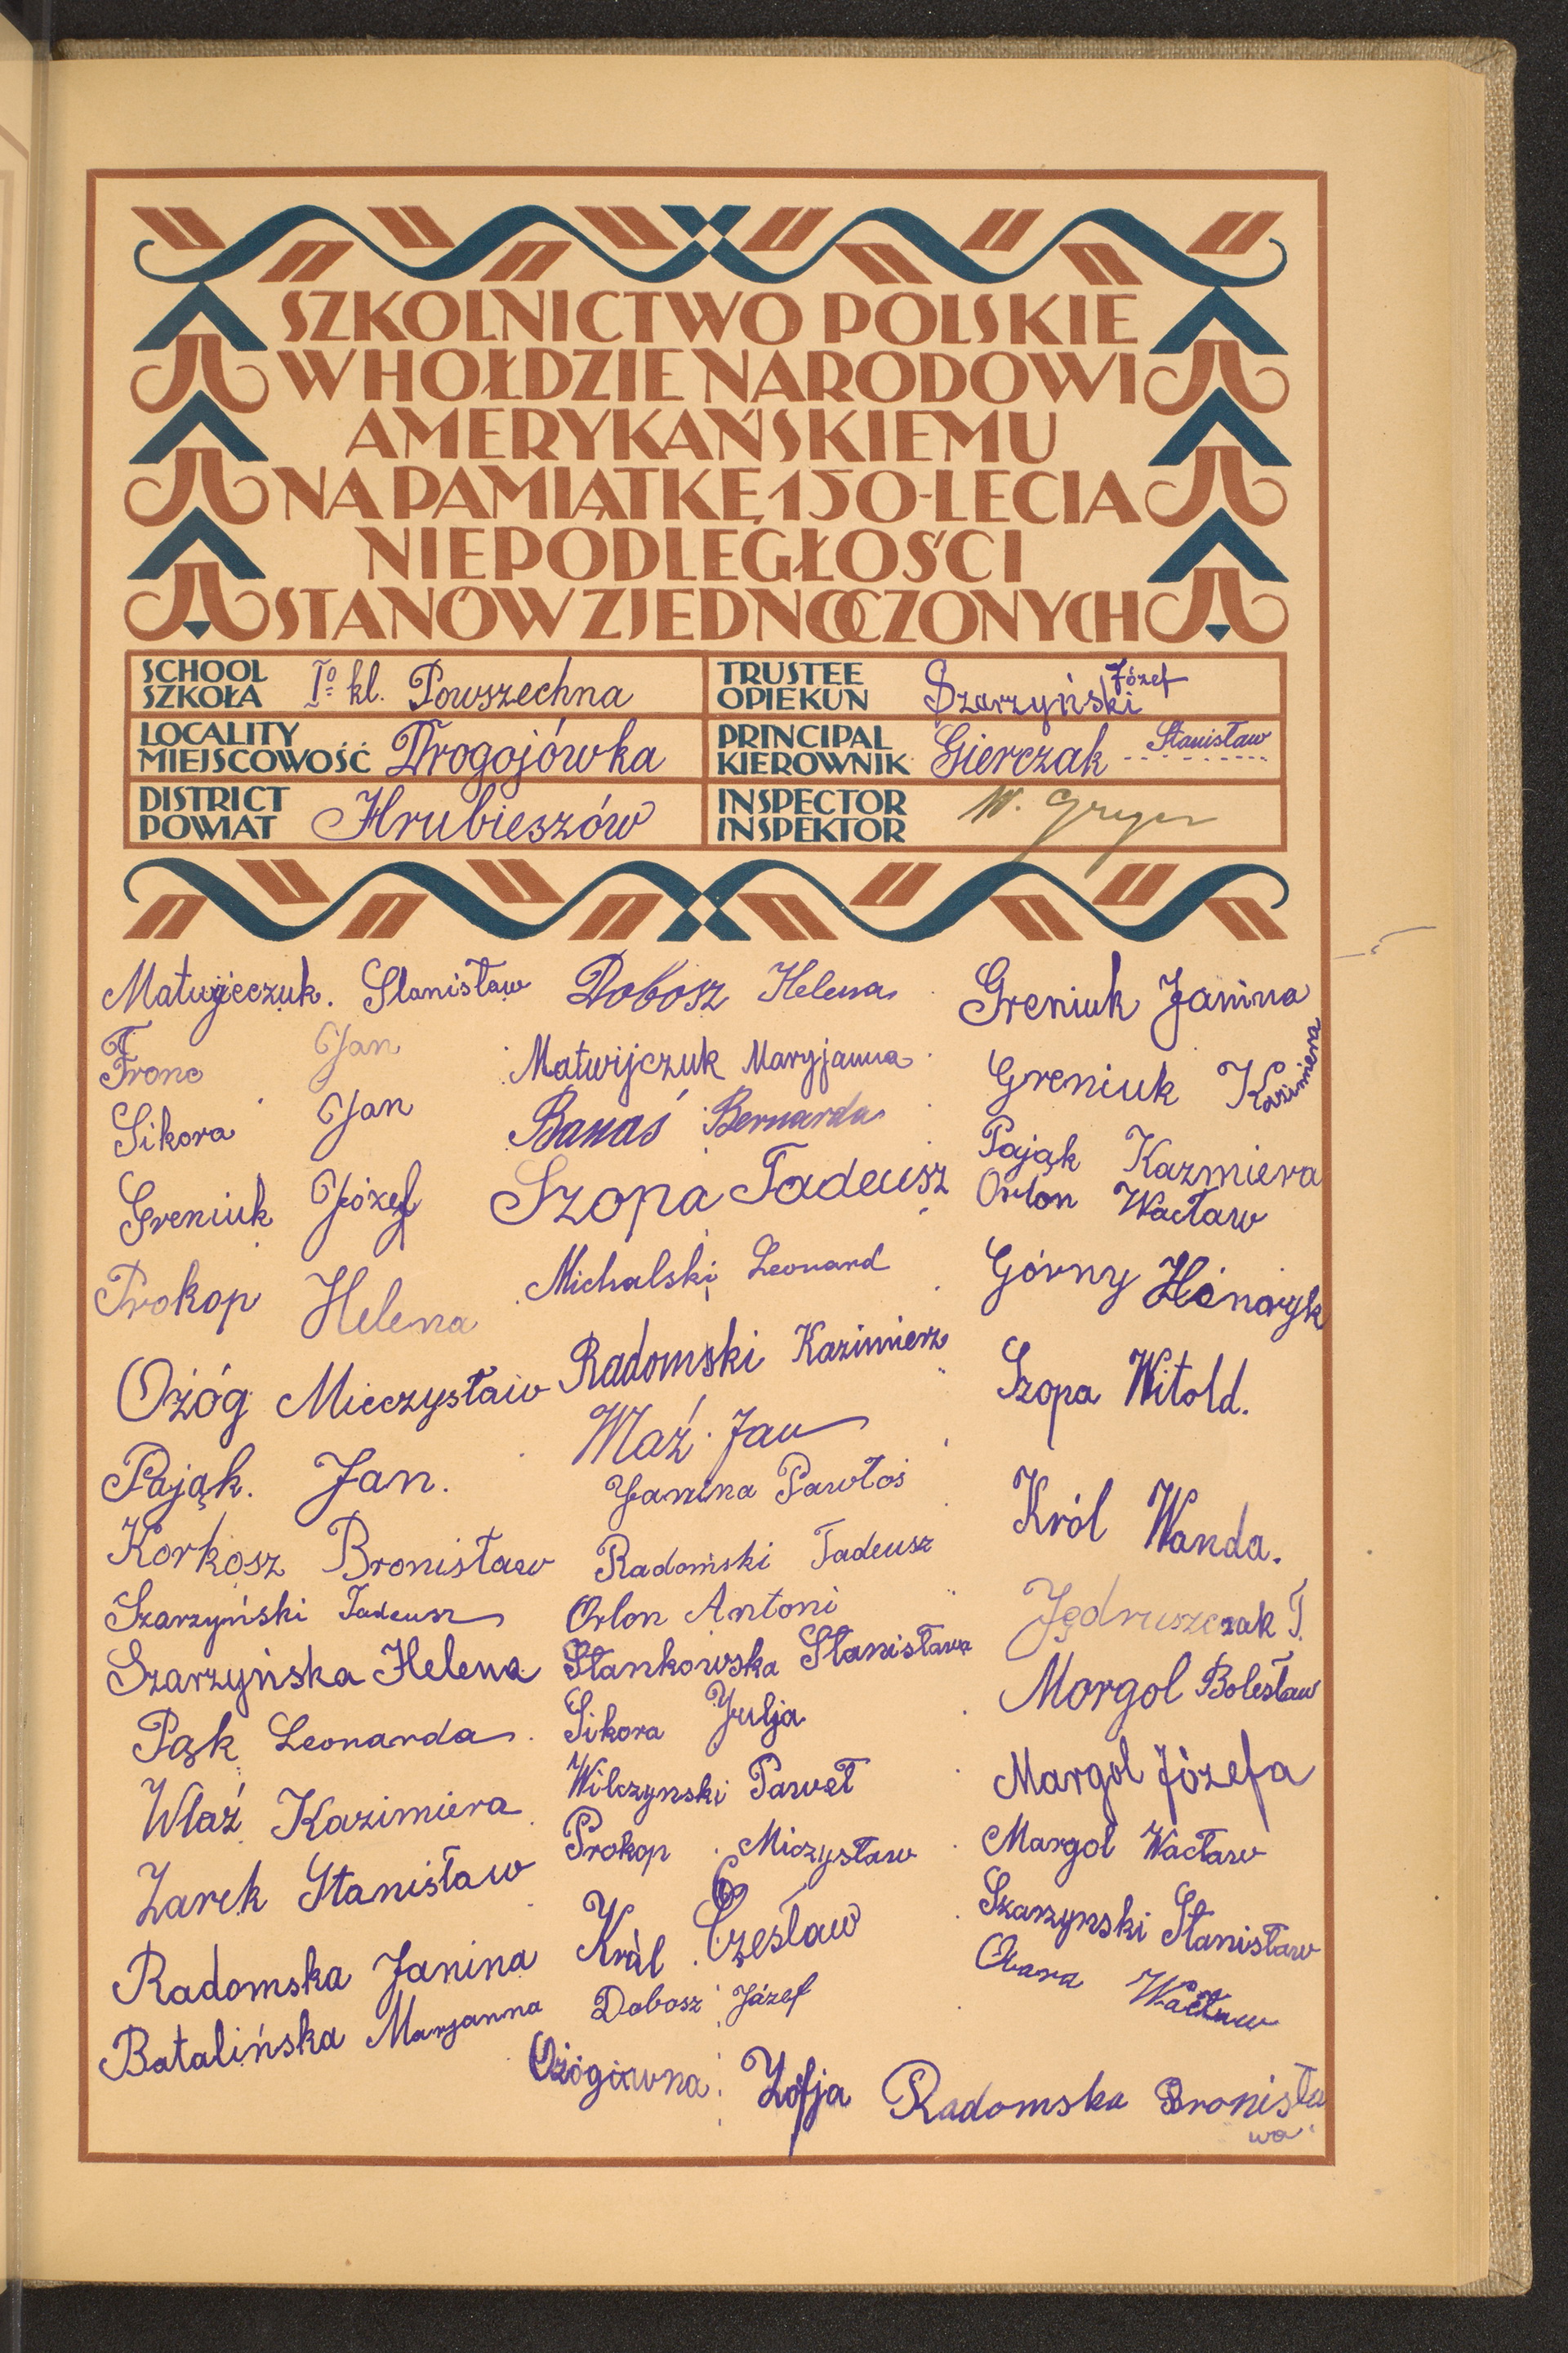 SZKOLNICTWO POLSKIE
W HOŁDZIE NARODOWI
AMERYKAŃSKIEMU
NA PAMIĄTKĘ 150-LECIA
NIEPODLEGŁOŚCI
STANÓW ZJEDNOCZONYCH
SCHOOL
SZKOŁA
Io kl. Powszechna
TRUSTEE
OPIEKUN
Szarzyński Józef
LOCALITY
MIEJSCOWOŚĆ
Drogojówka
PRINCIPAL
KIEROWNIK
Gierczak Stanisław
DISTRICT
POWIAT
Hrubieszów
INSPECTOR
INSPEKTOR
W.
Matwijeczuk. Stanisław
Fronc Jan
Sikora Jan
Greniuk Józef
Prokop Helena
Ożóg Mieczysław
Pająk. Jan.
Korkosz Bronisław
Szarzyński Tadeusz
Szarzyńska Helena
Pąk Leonarda
Właź Kazimiera
Żarek Stanisław
Radomska Janina
Batalińska Marjanna
Dobosz Helena
Matwijczuk Maryjanna
Banaś Bernarda
Szopa Tadeusz
Michalski Leonard
Radomski Kazimierz
Właź Jan
Janina Pawłoś
Radomski Tadeusz
Orlon Antoni
Stankowska Stanisława
Sikora Julja
Wilczynski Paweł
Prokop Miczysław
Król Czesław
Dobosz Józef
Ożógówna Zofja
Greniuk Janina
Greniuk Kazimiera
Pająk Kazmiera
Orlon Wacław
Górny Henoryk
Szopa Witold.
Król Wanda.
Jędruszczak T.
Morgol Bolesław
Margol Józefa
Margol Wacław
Szarzynski Stanisław
Obara Wacław
Radomska Bronisła
wa